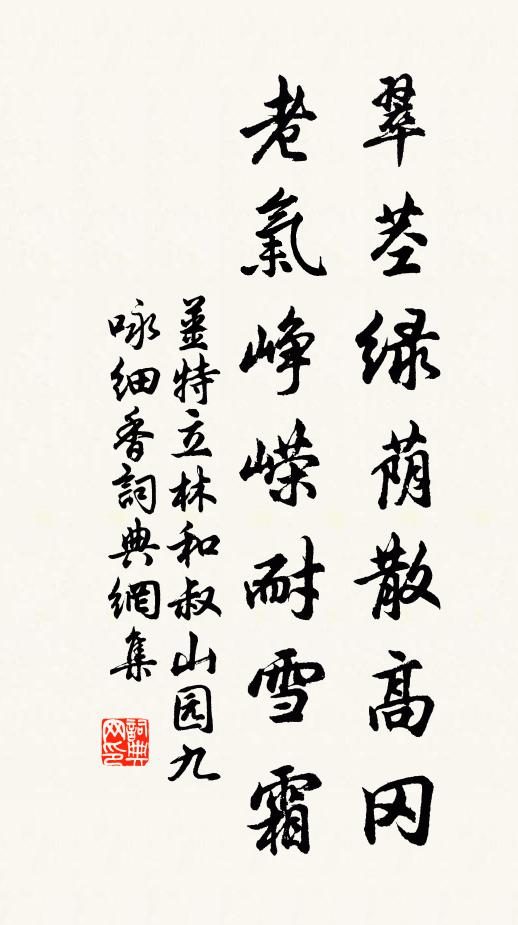 翠茎绿荫散高冈
老氣峥嵘耐雪霜
姜特立林和叔山园九
咏细香詞典網集
詞典
网印